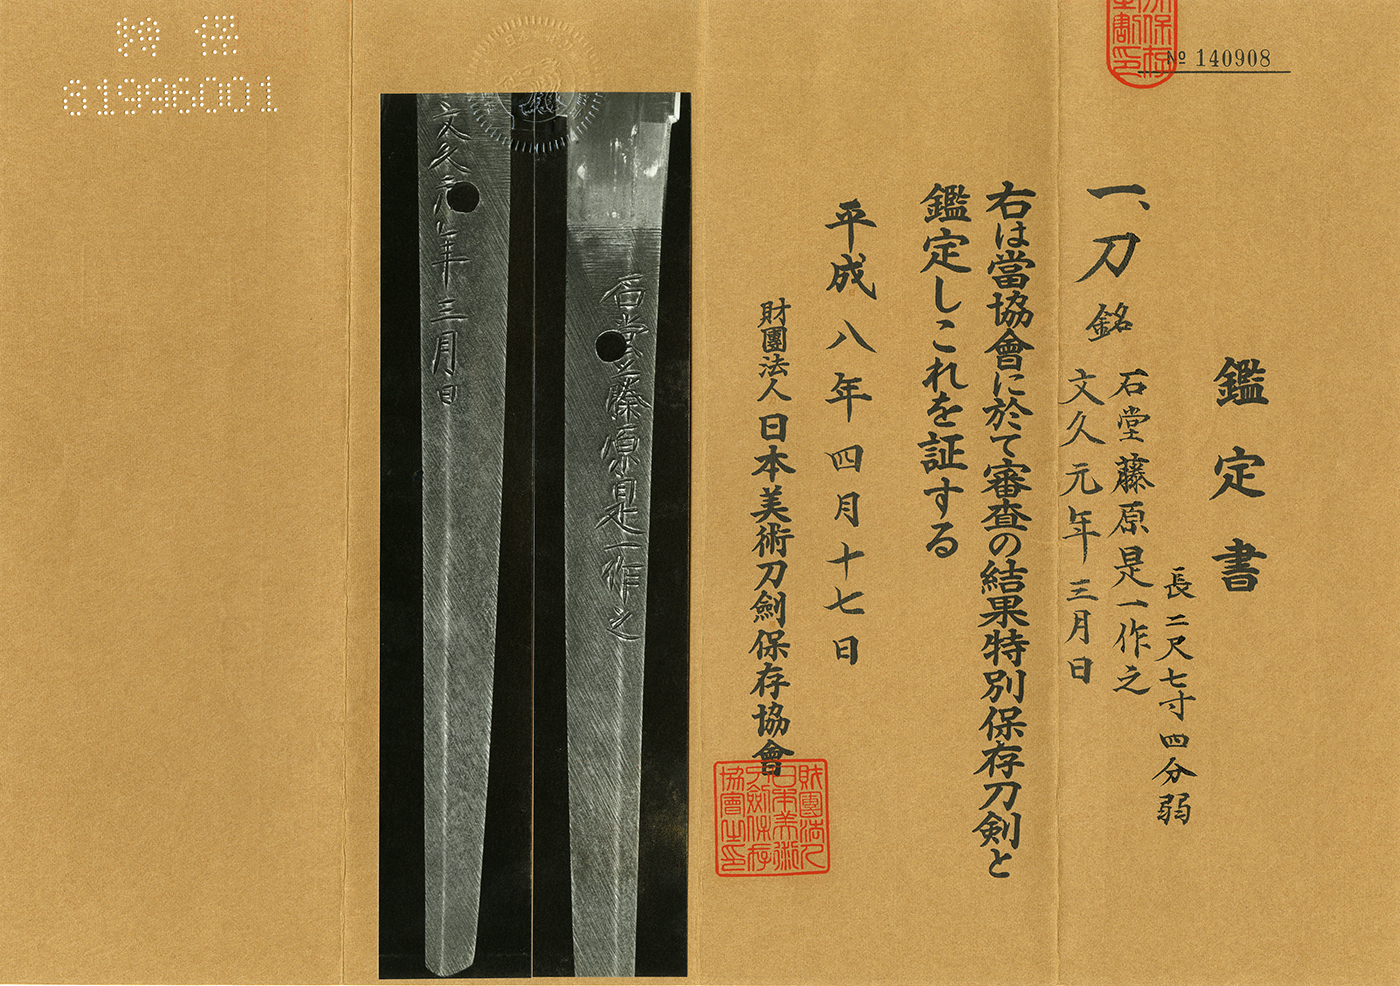 № 140908
鑑定書
長二尺七寸四分弱
一、刀 銘 石堂藤原是一作之
文久元年三月日
右は當協會に於て審査の結果特別保存刀剣と
鑑定しこれを証する
平成八年四月十七日
財團法人日本美術刀劍保存協會
財團法人
日本美術
刀劍保存
協會之印
石堂藤原是一作之
文久元年三月日
保特
61996001